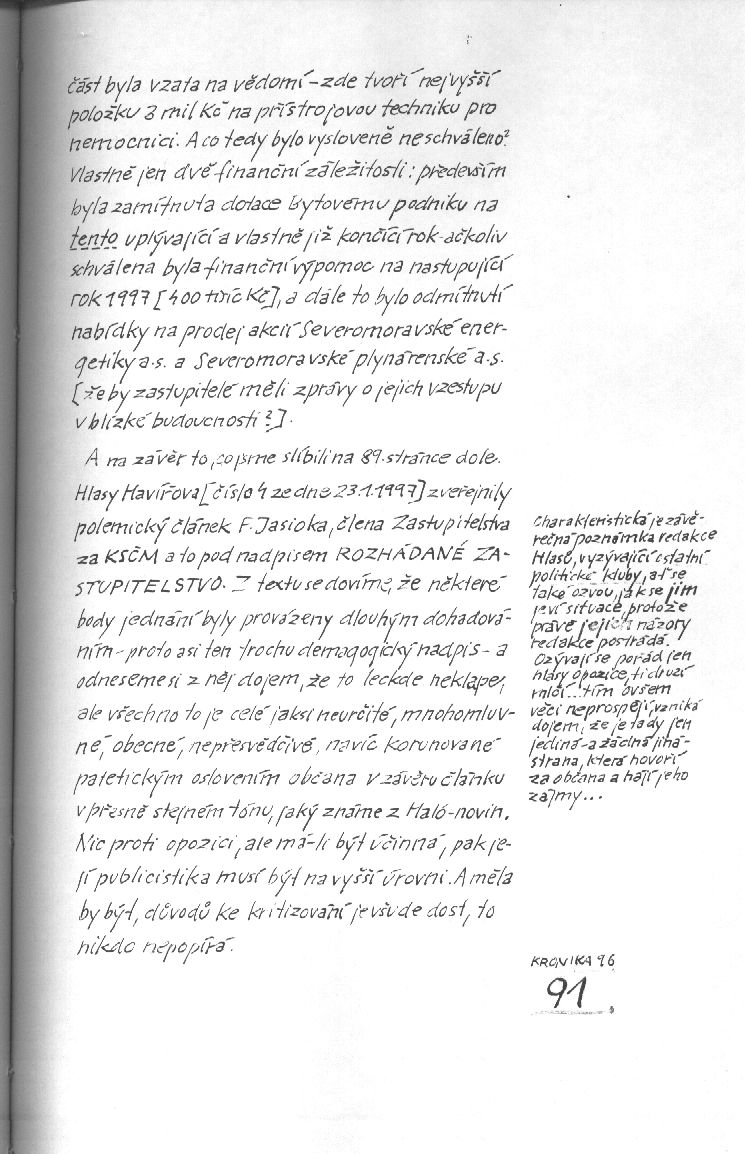 část byla vzata na vědomí – zde tvoří nejvyšší
položku 3 mil Kč na přístrojovou techniku pro
nemocnici. A co tedy bylo vysloveně neschváleno?
Vlastně jen dvě finanční záležitosti: především
byla zamítnuta dotace Bytovému podniku na
tento uplývající a vlastně již končící rok-ačkoliv
schválena byla finanční výpomoc na nastupující
rok 1997 [400 tisíc Kč], a dále to bylo odmítnutí
nabídky na prodej akcií Severomoravské ener-
getiky a.s. a Severomoravské plynárenské a.s.
[že by zastupitelé měli zprávy o jejich vzestupu
v blízké budoucnosti?].
A na závěr to, co jsme slíbili na 89. stránce dole.
Hlasy Havířova [číslo 4 ze dne 23.1.1997] zveřejnily
polemický článek F. Jasioka, člena Zastupitelstva
za KSČM a to pod nadpisem ROZHÁDANÉ ZA-
STUPITELSTVO. Z textu se dovíme, že některé
body jednání byly provázeny dlouhým dohadová-
ním – proto asi ten trochu demagogický nadpis – a
odneseme si z něj dojem, že to leckde neklape,
ale všechno to je celé jaksi neurčité, mnohomluv-
né, obecné, nepřesvědčivé, navíc korunované
patetickým oslovením občana v závěru článku
v přesně stejném tónu, jaký známe z Haló-novin.
Nic proti opozici, ale má-li být účinná, pak je-
jí publicistika musí být na vyšší úrovni. A měla
by být, důvodů ke kritizování je všude dost, to
nikdo nepopírá.
Charakteristická je závě-
rečná poznámka redakce
Hlasů, vyzývající ostatní
politické kluby, ať se
také ozvou, jak se jim
jeví situace, protože
právě jejich názory
redakce postrádá.
Ozývají se pořád jen
hlasy opozice, ti druzí
mlčí... tím ovšem
věci neprospějí, vzniká
dojem, že je tady jen
jediná – a žádná jiná –
strana, která hovoří
za občana a hájí jeho
zájmy...
KRONIKA 96
91